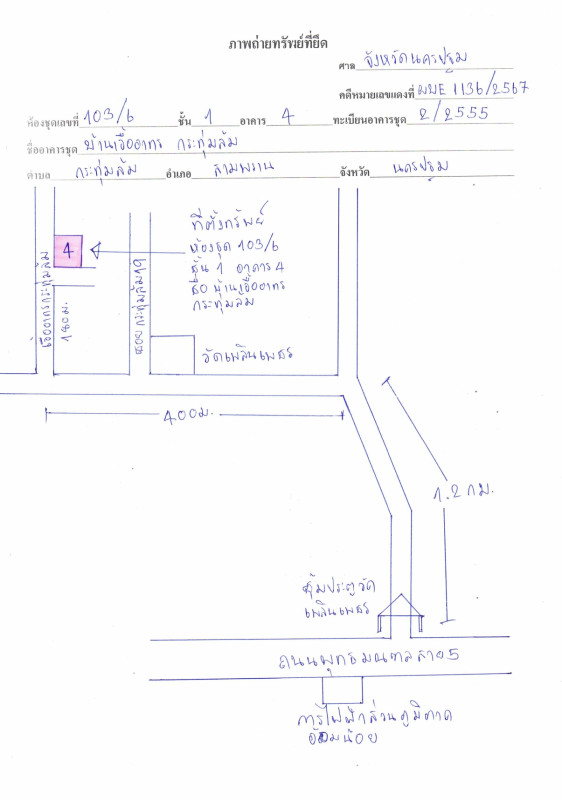 ภาพถ่ายทรัพย์ที่ยึด
ศาล จังหวัดนครปฐม
คดีหมายเลขแดงที่ ผบE 1136/2567
ห้องชุดเลขที่ 103/6 ชั้น 1 อาคาร 4 ทะเบียนอาคารชุด 2/2555
ชื่ออาคารชุด บ้านเอื้ออาทร กระทุ่มล้ม
ตำบล กระทุ่มล้ม อำเภอ สามพราน จังหวัด นครปฐม
ที่ตั้งทรัพย์
ห้องชุด 103/6
ชั้น 1 อาคาร 4
ชื่อ บ้านเอื้ออาทร
กระทุ่มล้ม
4
เอื้ออาทรกระทุ่มล้ม
180 ม.
ซอย กระทุ่มล้ม 19
วัดเพลินเพชร
400 ม.
1.2 กม.
ซุ้มประตูวัด
เพลินเพชร
ถนนพุทธมณฑลสาย 5
การไฟฟ้าส่วนภูมิภาค
อ้อมน้อย